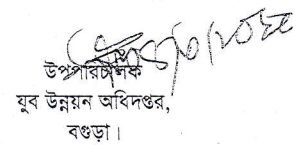 উপপরিচালক
যুব উন্নয়ন অধিদপ্তর,
বগুড়া।